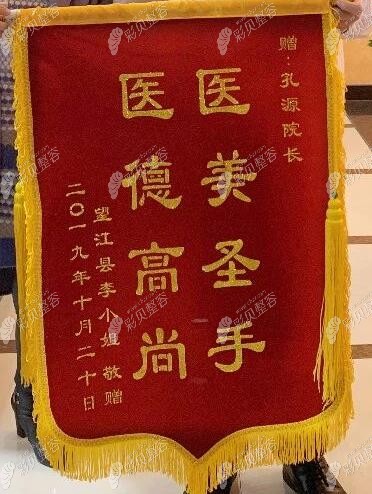 赠：孔源院长
医美圣手
医德高尚
望江县李小姐 敬赠
二〇一九年十月二十日
彩贝整容